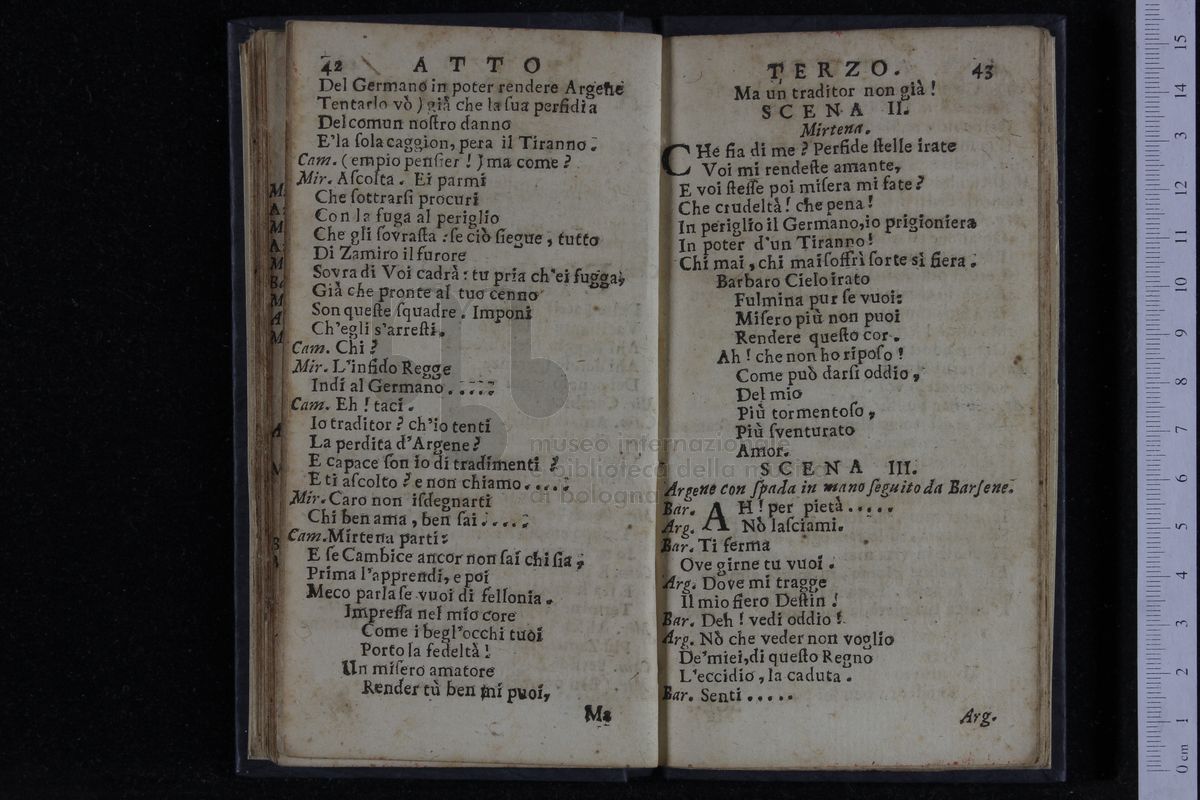 42 ATTO
Del Germano in poter rendere Argene
Tentarlo vò ) già che la ſua perfidia
Del comun noſtro danno
E'la ſola caggion, pera il Tiranno.
Cam. ( empio penſier! ) ma come?
Mir. Aſcolta. Ei parmi
Che ſottrarſi procuri
Con la fuga al periglio
Che gli ſovraſta: ſe ciò ſiegue, tutto
Di Zamiro il furore
Sovra di Voi cadrà: tu pria ch'ei fugga;
Già che pronte al tuo cenno
Son queſte ſquadre. Imponi
Ch'egli s'arreſti.
Cam. Chi?
Mir. L'infido Regge
Indi al Germano.....
Cam. Eh! taci.
Io traditor? ch'io tenti
La perdita d'Argene?
E capace ſon io di tradimenti?
E ti aſcolto? e non chiamo.....
Mir. Caro non iſdegnarti
Chi ben ama, ben ſai.....
Cam. Mirtena parti:
E ſe Cambice ancor non ſai chi ſia,
Prima l'apprendi, e poi
Meco parla ſe vuoi di fellonia.
Impreſſa nel mio core
Come i begl'occhi tuoi
Porto la fedeltà!
Un miſero amatore
Render tù ben mi puoi,
Ma
TERZO. 43
Ma un traditor non già!
SCENA II.
Mirtena.
CHe fia di me? Perfide ſtelle irate
Voi mi rendeſte amante,
E voi ſteſſe poi miſera mi fate?
Che crudeltà! che pena!
In periglio il Germano, io prigioniera
In poter d'un Tiranno!
Chi mai, chi mai ſoffrì ſorte sì fiera.
Barbaro Cielo irato
Fulmina pur ſe vuoi:
Miſero più non puoi
Rendere queſto cor.
Ah! che non ho ripoſo!
Come può darſi oddio,
Del mio
Più tormentoſo,
Più ſventurato
Amor.
SCENA III.
Argene con ſpada in mano ſeguito da Barſene.
Bar. AH! per pietà.....
Arg. Nò laſciami.
Bar. Ti ferma
Ove girne tu vuoi.
Arg. Dove mi tragge
Il mio fiero Deſtin!
Bar. Deh! vedi oddio!
Arg. Nò che veder non voglio
De'miei, di queſto Regno
L'eccidio, la caduta.
Bar. Senti.....
Arg.
museo internazionale
e biblioteca della musica
di bologna